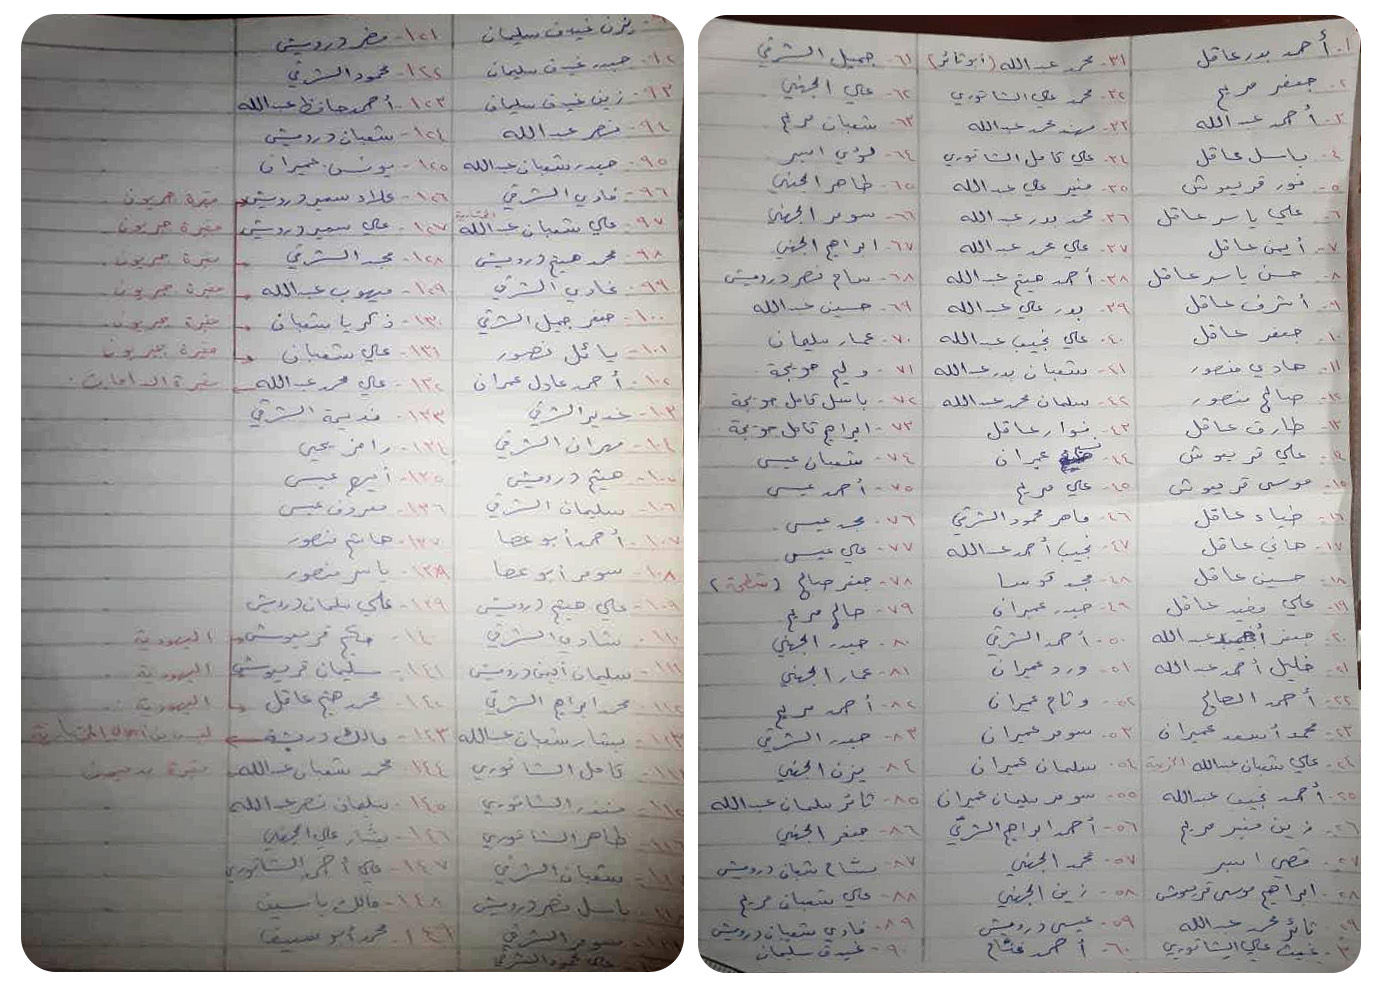 ١- أحمد بدر عاقل
٢- جعفر مريم
٣- أحمد عبد الله
٤- باسل عاقل
٥- نور قريموش
٦- علي ياسر عاقل
٧- أيمن عاقل
٨- حسن ياسر عاقل
٩- أشرف عاقل
١٠- جعفر عاقل
١١- هادي منصور
١٢- صالح منصور
١٣- طارق عاقل
١٤- علي قريموش
١٥- موسى قريموش
١٦- ضياء عاقل
١٧- هاني عاقل
١٨- حسين عاقل
١٩- علي مفيد عاقل
٢٠- جعفر أحمد عبد الله
٢١- خليل أحمد عبد الله
٢٢- أحمد الصالح
٢٣- محمد أسعد عميران
٢٤- علي شعبان عبدالله
٢٥- أحمد نجيب عبدالله
٢٦- زين منير مريم
٢٧- قصي اسبر
٢٨- ابراهيم موسى قريموش
٢٩- ثائر محمد عبد الله
٣٠- غيث علي الشاتوري
٣١- محمد عبد الله (أبو ثائر)
٣٢- محمد علي الشاتوري
٣٣- مهند محمد عبدالله
٣٤- علي كامل الشاتوري
٣٥- منير علي عبدالله
٣٦- محمد بدر عبدالله
٣٧- علي محمد عبدالله
٣٨- أحمد هيثم عبدالله
٣٩- بدر علي عبدالله
٤٠- علي نجيب عبدالله
٤١- شعبان بدر عبدالله
٤٢- سلمان محمد عبدالله
٤٣- نوار عاقل
٤٤- عميران
٤٥- علي مريم
٤٦- ماهر محمود الشرقي
٤٧- نجيب أحمد عبدالله
٤٨- مجد كوسا
٤٩- حيدر عميران
٥٠- أحمد الشرقي
٥١- ورد عميران
٥٢- وئام عميران
٥٣- سومر عميران
٥٤- سلمان عميران
٥٥- سومر سلمان عميران
٥٦- أحمد ابراهيم الشرقي
٥٧- محمد الجهني
٥٨- زين الجهني
٥٩- عيسى درويش
٦٠- أحمد
٦١- جميل الشرقي
٦٢- علي الجهني
٦٣- شعبان مريم
٦٤- لؤي اسبر
٦٥- طاهر الجهني
٦٦- سومر الجهني
٦٧- ابراهيم الجهني
٦٨- سامح نصر درويش
٦٩- حسين عبدالله
٧٠- عمار سليمان
٧١- وليم جونجة
٧٢- باسل كامل جونجة
٧٣- ابراهيم كامل جونجة
٧٤- شعبان عيسى
٧٥- أحمد عيسى
٧٦- مجد عيسى
٧٧- علي عيسى
٧٨- جعفر صالح (شطحة)
٧٩- صالح مريم
٨٠- حيدر الجهني
٨١- عمار الجهني
٨٢- أحمد مريم
٨٣- حيدر الشرقي
٨٤- يزن الجهني
٨٥- ثائر سلمان عبدالله
٨٦- جعفر الجهني
٨٧- شعبان درويش
٨٨- علي شعبان مريم
٨٩- فادي شعبان درويش
٩٠- غيدق سليمان
يزن غيدق سليمان
٩٢- حيدر غيدق سليمان
٩٣- زين غيدق سليمان
٩٤- نصر عبدالله
٩٥- حيدر شعبان عبدالله
٩٦- فادي الشرقي
٩٧- علي شعبان عبدالله
٩٨- محمد هيثم درويش
٩٩- غادي الشرقي
١٠٠- جعفر جميل الشرقي
١٠١- يائل منصور
١٠٢- أحمد عادل عمران
١٠٣- غدير الشرقي
١٠٤- مهران الشرقي
١٠٥- هيثم درويش
١٠٦- سليمان الشرقي
١٠٧- أحمد أبو عصا
١٠٨- سومر أبو عصا
١٠٩- علي هيثم درويش
١١٠- شادي الشرقي
١١١- سليمان أيمن درويش
١١٢- محمد ابراهيم الشرقي
١١٣- بشار شعبان عبدالله
كامل الشاتوري
الشاتوري
طاهر الشاتوري
شعبان الشرقي
باسل نصر درويش
سومر الشرقي
علي محمود الشرقي
١٢١- مضر درويش
١٢٢- محمود الشرقي
١٢٣- أحمد حافظ عبدالله
١٢٤- شعبان درويش
١٢٥- يونس عميران
١٢٦- علاء سمير درويش مقبرة حريصون
١٢٧- علي سمير درويش مقبرة حريصون
١٢٨- مجد الشرقي مقبرة حريصون
١٢٩- موهوب عبدالله مقبرة حريصون
١٣٠- زكريا شعبان مقبرة حريصون
١٣١- علي شعبان مقبرة حريصون
١٣٢- علي محمد عبدالله مقبرة
١٣٣- نديمة الشرقي
١٣٤- رامز يحيى
١٣٥- أيهم عيسى
١٣٦- معروف عيسى
١٣٧- هاشم منصور
١٣٨- ياسر منصور
١٣٩- علي سلمان درويش
١٤٠- قريموش اليهودية
١٤١- سليمان قريموش اليهودية
١٤٢- محمد هيثم عاقل اليهودية
١٤٣- مالك درويش ليس من أهالي
١٤٤- محمد شعبان عبدالله مقبرة
١٤٥- سليمان نصر عبدالله
١٤٦- بشار علي الجهني
١٤٧- علي أحمد الشاتوري
١٤٨- مالك ياسين
١٤٩- محمد أبو سيف